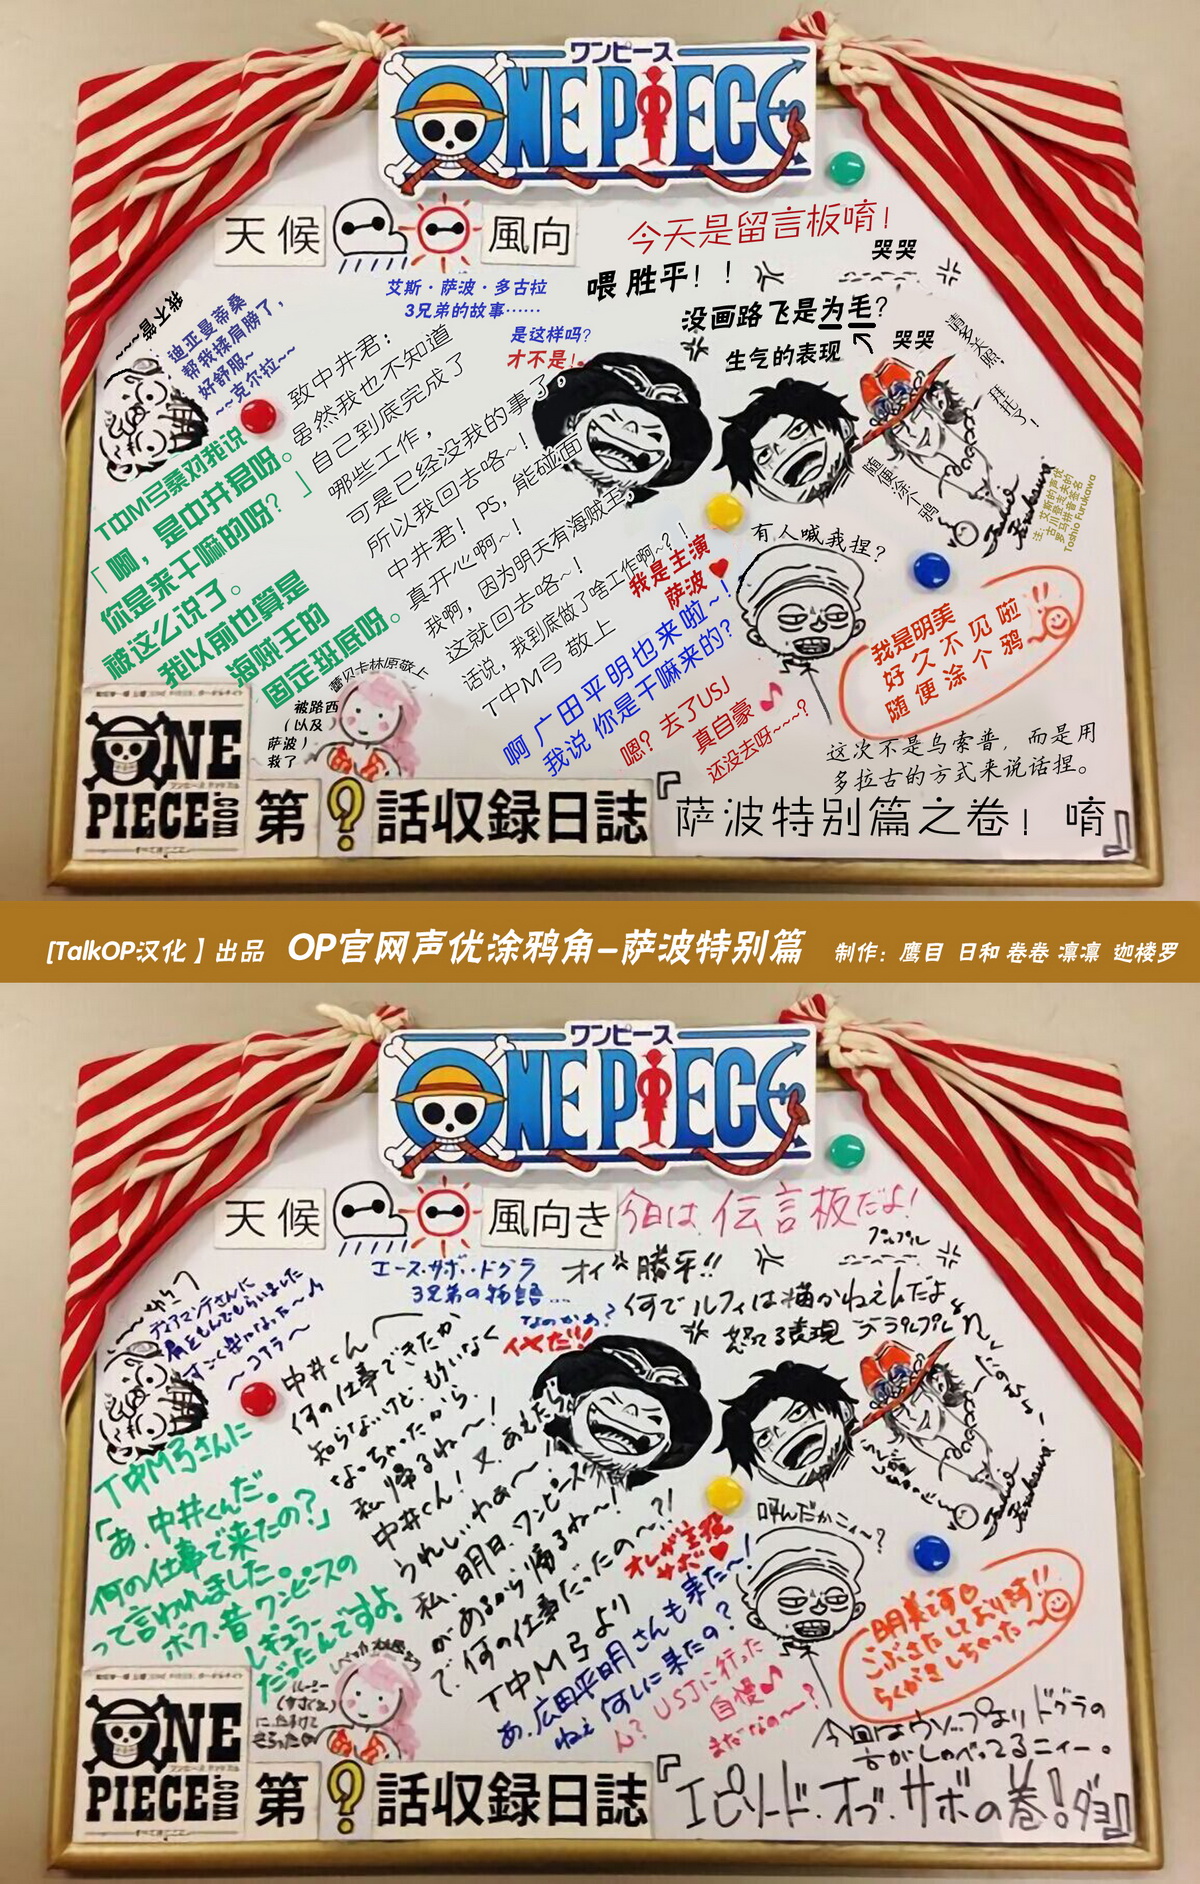 ワンピース
ONE PIECE
天候
風向
今天是留言板唷!
喂 胜平!!
哭哭
没画路飞是为毛?
生气的表现
哭哭
请多关照,
拜托了!
随便涂个鸦
注:艾斯的声优
古川登志夫的
罗马拼音签名
Toshio Furukawa
Toshio
Furukawa
艾斯·萨波·多古拉
3兄弟的故事……
是这样吗?
才不是!。
我不管~~
迪亚曼蒂桑
帮我揉肩膀了,
好舒服~
~~克尔拉~~
T中M弓桑对我说
「啊,是中井君呀。
你是来干嘛的呀?」
被这么说了。
我以前也算是
海贼王的
固定班底呀。
致中井君:
虽然我也不知道
自己到底完成了
哪些工作,
可是已经没我的事了,
所以我回去咯~!
中井君!PS,能碰面
真开心啊~!
我啊,因为明天有海贼王,
这就回去咯~!
话说,我到底做了啥工作啊~?!
T中M弓 敬上
我是主演
萨波♥
啊 广田平明也来啦~!
我说 你是干嘛来的?
嗯?去了USJ
真自豪♪
还没去呀~~~?
有人喊我捏?
我是明美
好久不见啦!!
随便涂个鸦
这次不是乌索普,而是用
多拉古的方式来说话捏。
蕾贝卡林原敬上
被路西
(以及
萨波)
救了
ONE
PIECE.com
第?話収録日誌
『萨波特别篇之卷!唷』
[TalkOP汉化】出品 OP官网声优涂鸦角–萨波特别篇 制作:鹰目 日和 卷卷 凛凛 迦楼罗
ワンピース
ONE PIECE
天候
風向き
今日は伝言板だよ!
オイ 勝平!!
プルプル
何でルフィは描かねぇんだよ
怒ってる表現
プルプル
Toshio
Furukawa
エース・サボ・ドグラ
3兄弟の物語…
なのかぁ?
イヤだ!!
ディアマンテさんに
肩をもんでもらいました
すごく楽になった~♪
~コアラ~
T中M弓さんに
「あ、中井くんだ。
何の仕事で来たの?」
って言われました。
ボク、昔ワンピースの
レギュラー
だったんですよ。
中井くんへ
何の仕事できたか
知らないけど、もういなく
なっちゃったから、
私 帰るね~!
中井くん!又、あえたら
うれしいわぁ~!
私、明日、ワンピース
があるから帰るね~!
で、何の仕事だったの~?!
T中M弓より
オレが主役
サボ♥
あ、広田平明さんも来た~!
ねぇ 何しに来たの?
ん?USJに行った
自慢♪
まだなの~?
呼んだかニィ~?
明美です♡
ごぶさたしております!!
らくがきしちゃった~
今回はウソップよりドグラの
方がしゃべってるニィー。
ONE
PIECE.com
第?話収録日誌
『エピソード・オブ・サボの巻!ダヨ』